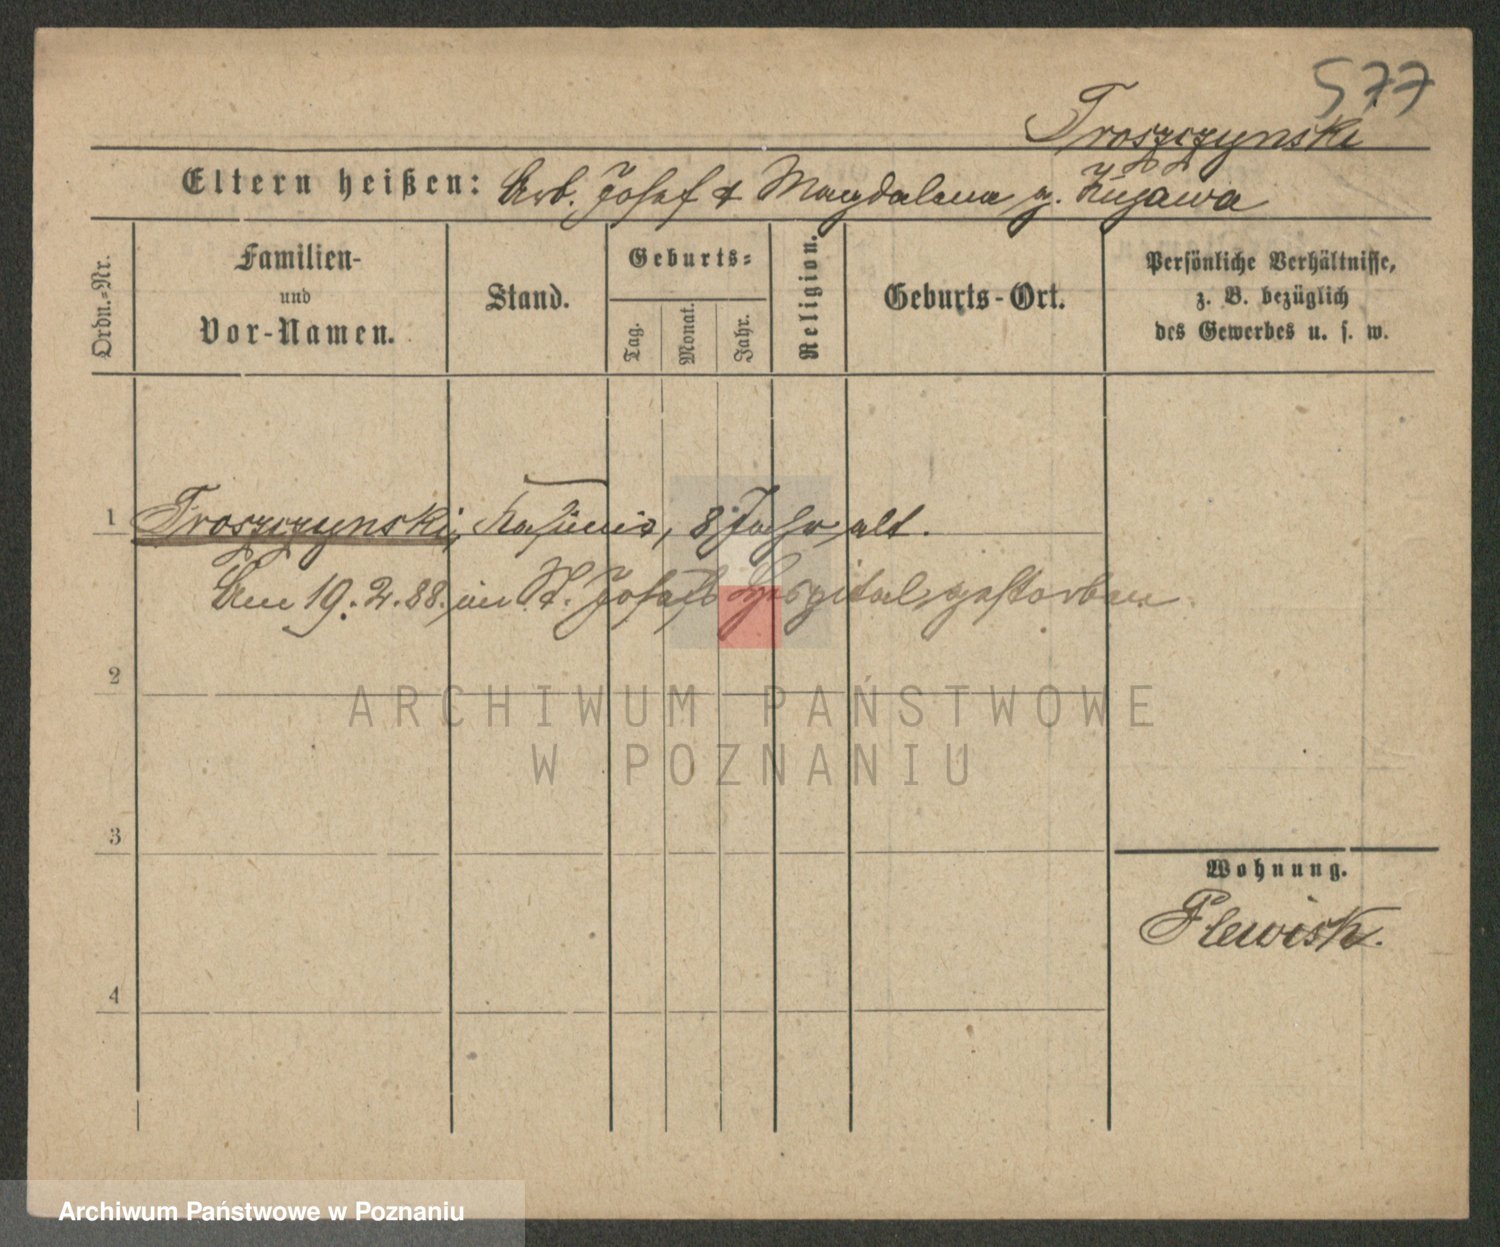 577
Troszczynski
Eltern heißen: Arb. Josef & Magdalena g. Kujawa
Ordn.-Nr.
Familien-
und
Vor-Namen.
Stand.
Geburts-
Tag.
Monat.
Jahr.
Religion.
Geburts-Ort.
Persönliche Verhältnisse,
z. B. bezüglich
des Gewerbes u. s. w.
1 Troszczynski, Kasimir, 8 Jahr alt.
Am 19.2.88. im St. Josefs Hospital gestorben
2
ARCHIWUM PAŃSTWOWE
W POZNANIU
3
Wohnung.
Plewisk.
4
Archiwum Państwowe w Poznaniu